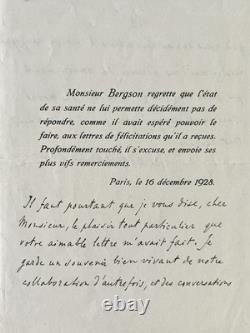 Monsieur Bergson regrette que l'état
de sa santé ne lui permette décidément pas de
répondre, comme il avait espéré pouvoir le
faire, aux lettres de félicitations qu'il a reçues.
Profondément touché, il s'excuse, et envoie ses
plus vifs remerciements.
Paris, le 16 décembre 1928.
Il faut pourtant que je vous dise, cher
Monsieur, le plaisir tout particulier que
votre aimable lettre m'avait fait. Je
garde un souvenir bien vivant de notre
collaboration d'autrefois, et des conversations